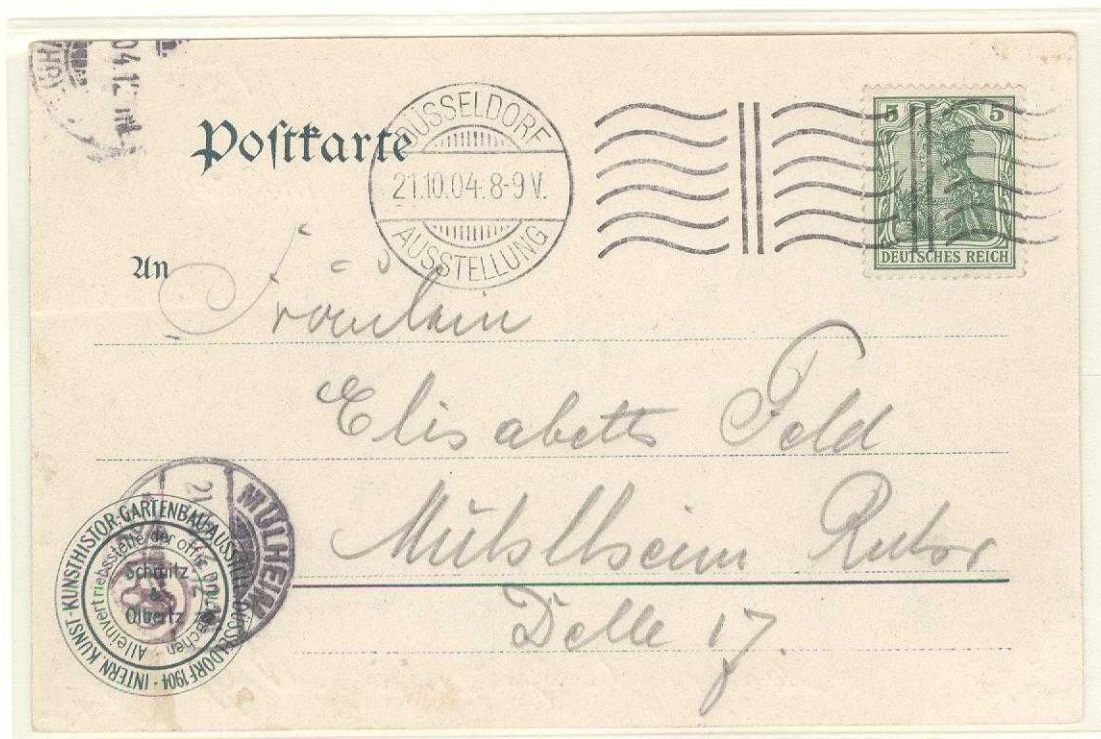 04.12
Postkarte
DÜSSELDORF
21.10.04. 8-9 V.
AUSSTELLUNG
5 5
DEUTSCHES REICH
An
Fräulein
Elisabeth Feld
Mühlheim Ruhr
Delle 17.
MÜLHEIM
21
INTERN KUNST-KUNSTHISTOR-GARTENBAU-AUSSTELL DÜSSELDORF 1904
Alleinvertriebsstelle der offic
Schmitz
&
Olvertz